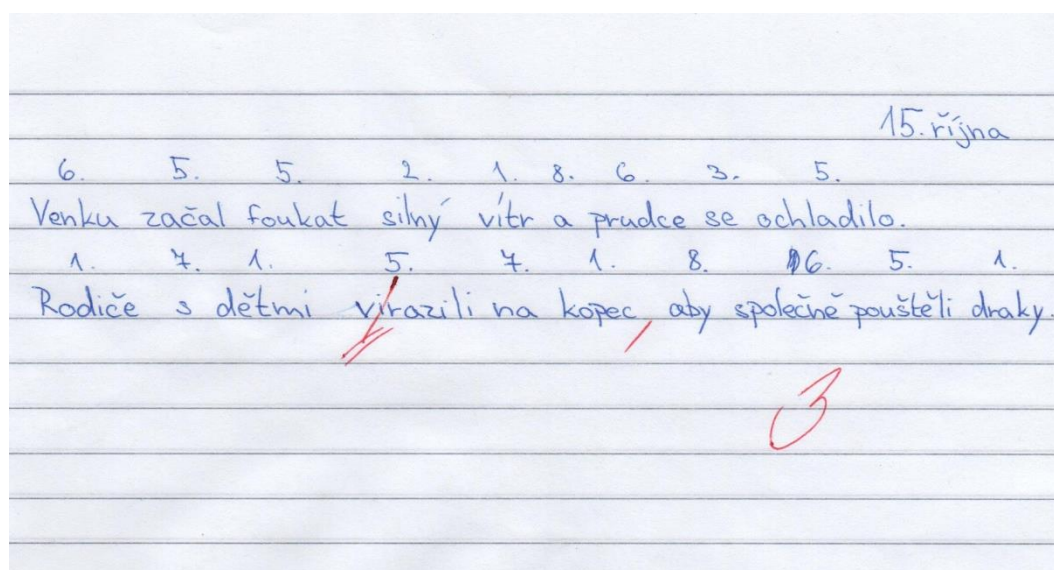 15. října
6. 5. 5. 2. 1. 8. 6. 3. 5.
Venku začal foukat silný vítr a prudce se ochladilo.
1. 7. 1. 5. 7. 1. 8. 6. 5. 1.
Rodiče s dětmi virazili na kopec, aby společně pouštěli draky.
3